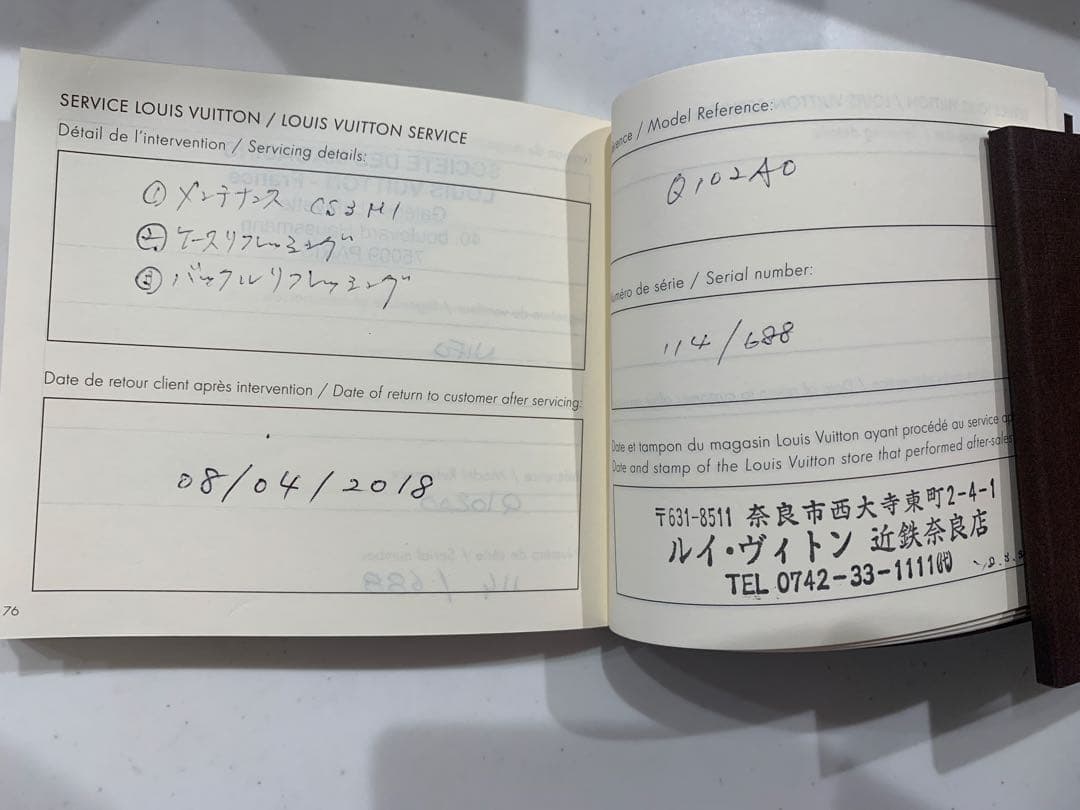 SERVICE LOUIS VUITTON / LOUIS VUITTON SERVICE
Détail de l'intervention / Servicing details:
① メンテナンス CS3H1
② ケースリフレッシング
③ バックルリフレッシング
Date de retour client après intervention / Date of return to customer after servicing:
08/04/2018
76
/ Model Reference:
Q102A0
de série / Serial number:
114/688
Date et tampon du magasin Louis Vuitton ayant procédé au service
Date and stamp of the Louis Vuitton store that performed after-sales
〒631-8511 奈良市西大寺東町2-4-1
ルイ・ヴィトン 近鉄奈良店
TEL 0742-33-1111㈹